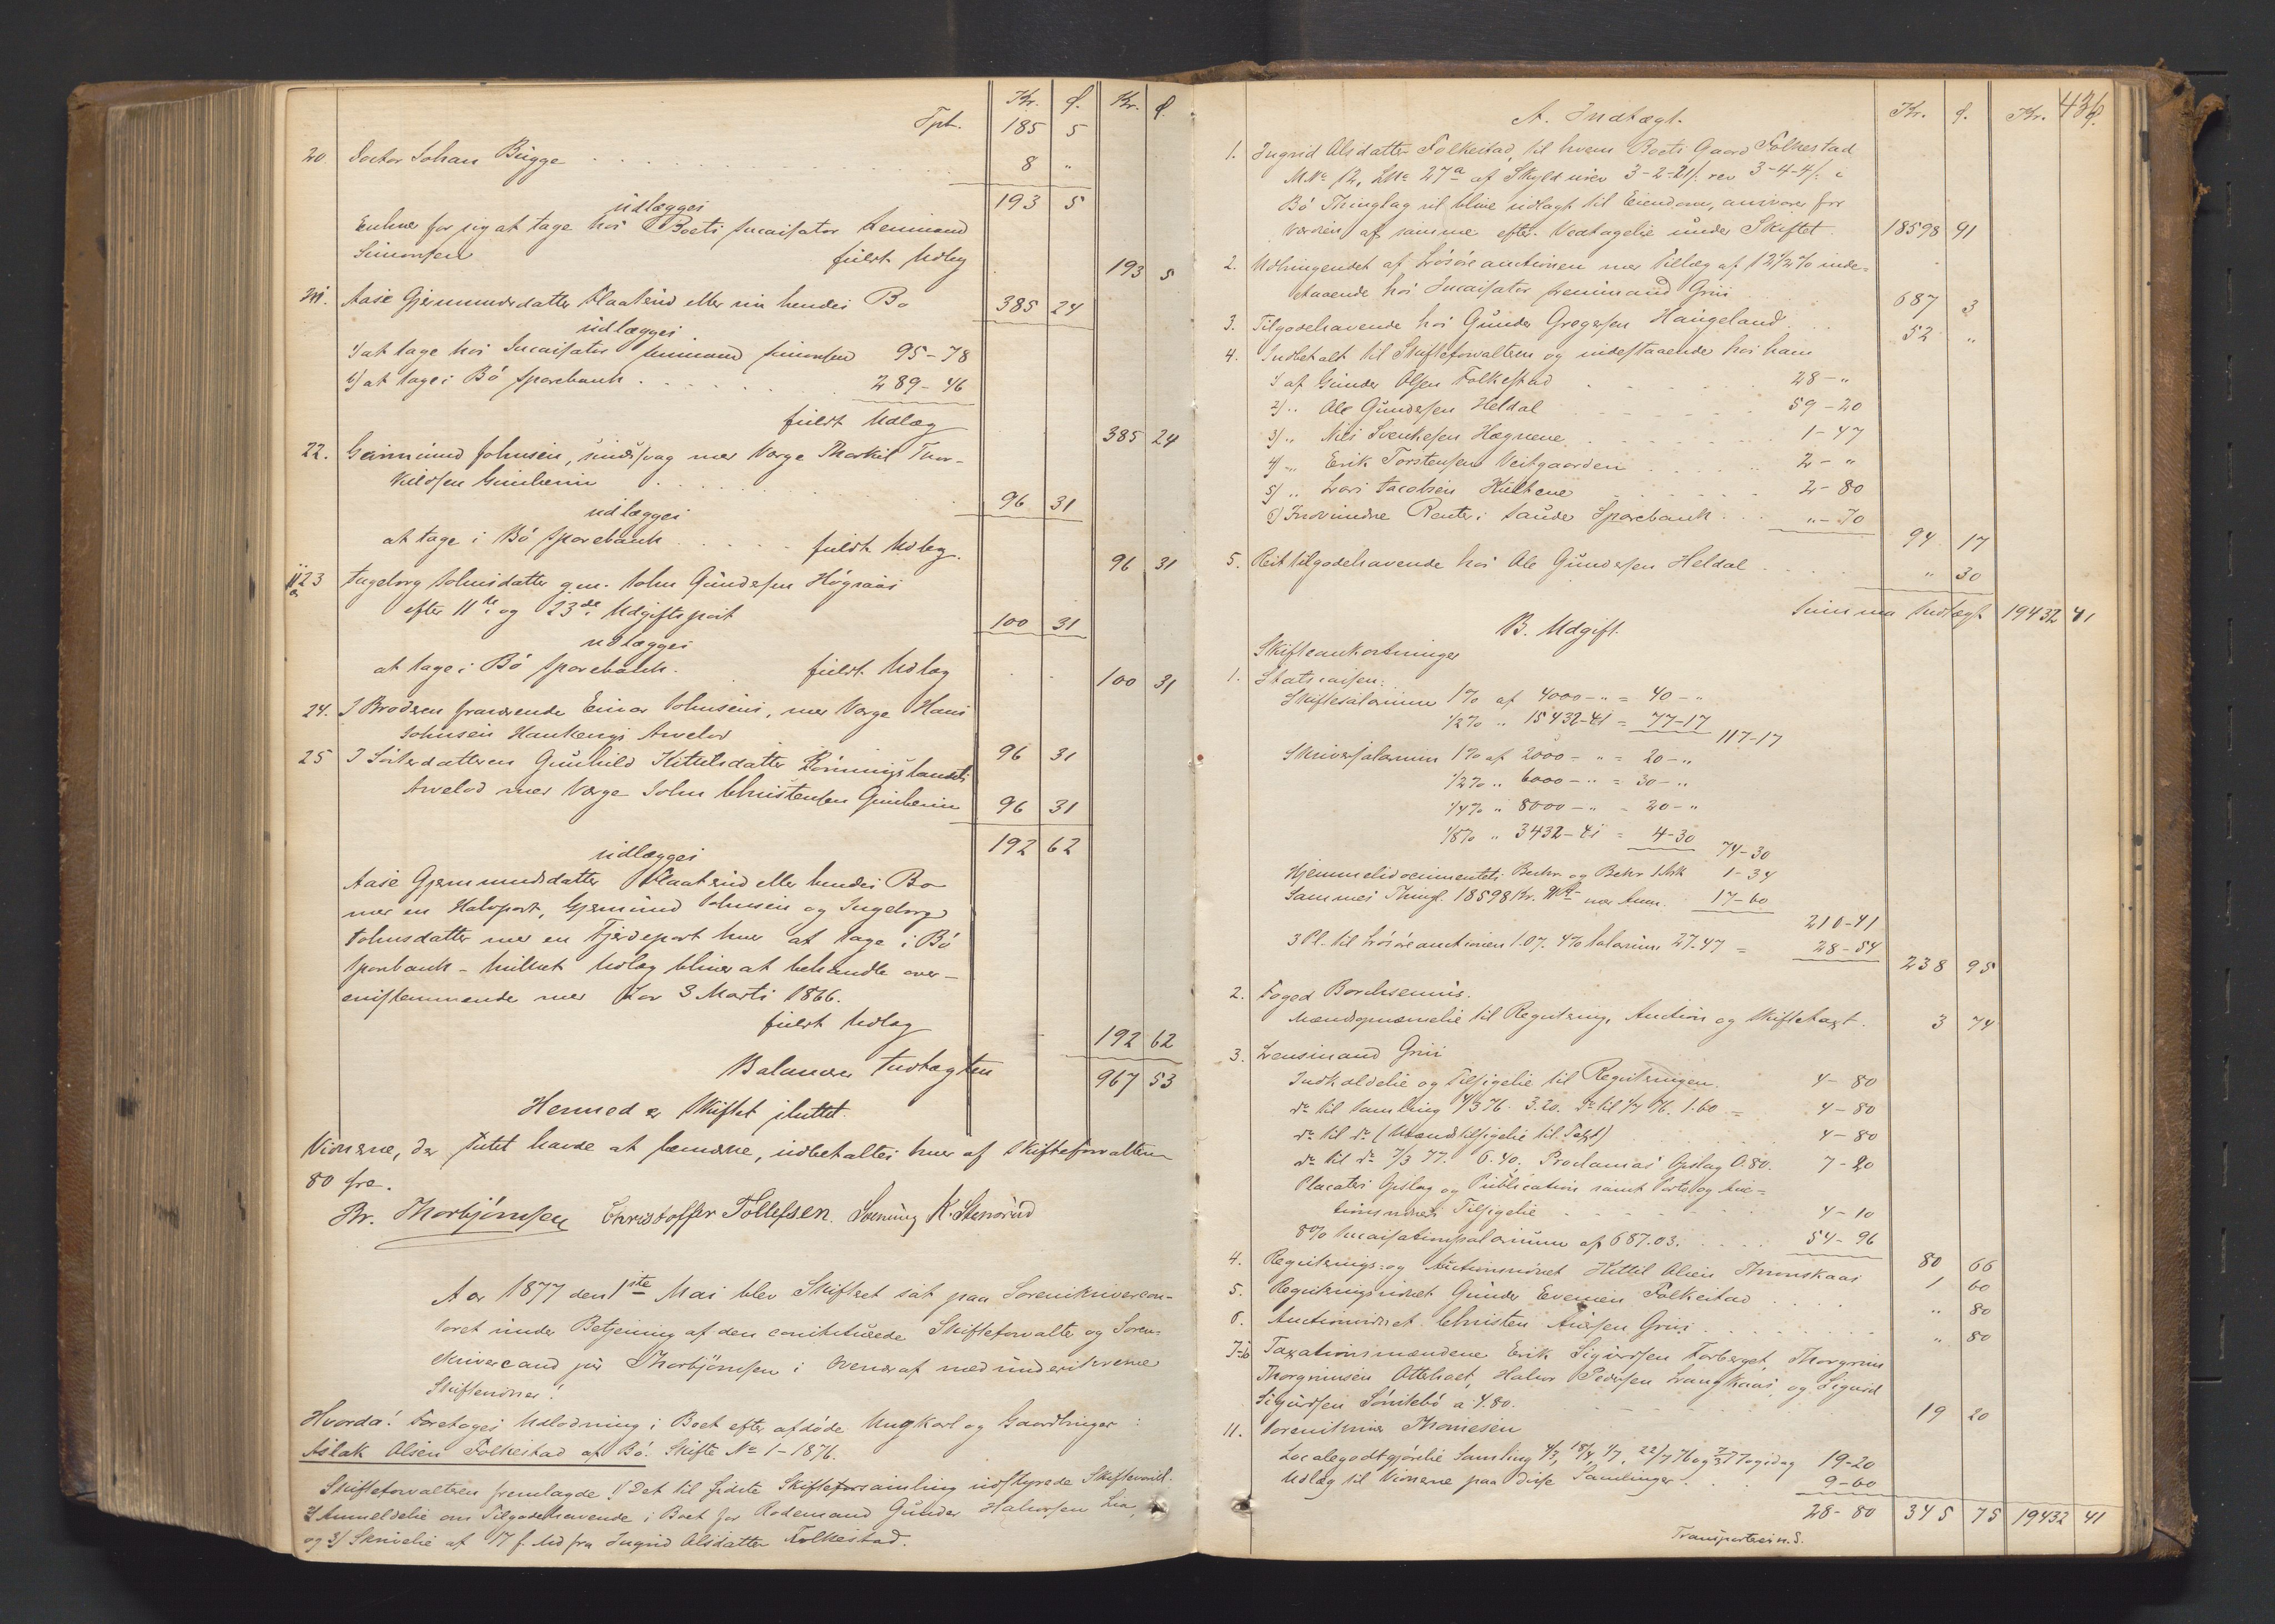 Kr. ø. Kr. ø.
Tpt. 185 5
20. Doctor Johan Bugge 8 "
193 5
udlægges
Enhver for sig at tage hos Boets Incassator Lensmand
Simonsen fuldt Udlæg 193 5
21. Aase Gjermundsdatter Plaaterud eller nu hendes Bo 385 24
udlægges
a) at tage hos Incassator Lensmand Simonsen 95-78
b) at tage i Bö Sparebank 289-46
fuldt Udlæg 385 24
22. Germund Johnsen, sindssvag med Værge Thorkil Thor-
kildsen Gunheim 96 31
udlægges
at tage i Bö Sparebank fuldt Udlæg. 96 31
11 & 23 Ingeborg Johnsdatter gm. John Gundersen Högraas
efter 11te og 23de Udgiftspost 100 31
udlægges
at tage i Bö Sparebank. fuldt Udlæg 100 31
24. I Broderen fraværende Einar Johnsens, med Værge Hans
Johnsen Haukenes Arvelod 96 31
25 I Sösterdatteren Gunhild Kittilsdatter Rönningslandets
Arvelod med Værge John Christensen Gunheim 96 31
192 62
udlægges
Aase Gjermundsdatter Plaaterud eller hendes Bo
med en Halvpart, Gjermund Johnsen og Ingeborg
Johnsdatter med en Fjerdepart hver at tage i Bö
Sparebank - hvilket Udlæg bliver at behandle over-
ensstemmende med Lov 3 Marts 1866.
fuldt Udlæg 192 62
Balancerer Indtægten 967 53
Hermed er Skiftet sluttet.
Vidnerne, der Intet havde at bemærke, udbetaltes hver af Skifteforvalteren
80 øre.
Br. Thorbjørnsen Christoffer Tollefsen. Svenung K. Stensrud
Aar 1877 den 1ste Mai blev Skifteret sat paa Sorenskrivercon-
toret under Betjening af den constituerede Skifteforvalter og Soren-
skriver cand jur Thorbjörnsen i Overvær af medunderskrevne
Skiftevidner:
Hvorda! Foretoges Udlodning i Boet efter afdøde Ungkarl og Gaardbruger
Aslak Olsen Folkestad af Bö. Skifte No 1-1876.
Skifteforvalteren fremlagde 1/ Det til sidste Skiftesamling udstyrede Skifteværk.
2/ Anmeldelse om Tilgodehavende i Boet for Rodemand Gunder Halvorsen Lia,
og 3/ Skrivelse af 17 f. Md fra Ingrid Olsdatter Folkestad.
436
A. Indtægt. Kr. ø. Kr. ø.
1. Ingrid Olsdatter Folkestad, til hvem Boets Gaard Folkestad
M.No 12, LNo 27a af Skyld urev 3-2-21/: rev 3-4-4/: i
Bö Thinglag vil blive udlagt til Eiendom, ansvarer for
Værdien af samme efter Vedtagelse under Skiftet 18598 91
2. Udbringendet af Lösöreauctionen med Tillæg af 12½% inde-
staaende hos Incassator Lensmand Griis 687 3
3. Tilgodehavende hos Gunder Gregersen Haugeland 52 "
4. Indbetalt til Skifteforvalteren og indestaaende hos ham
1/ af Gunder Olsen Folkestad 28-"
2/ " Ole Gundersen Heldal 59-20
3/ " Nils Svenkesen Hægnene 1-47
4/ " Erik Torstensen Veitgaarden 2-"
5/ " Lars Jacobsen Hultene 2-80
6) Indvundne Renter i Saude Sparebank "-70
94 17
5. Resttilgodehavende hos Ole Gundersen Heldal " 30
Summa Indtægt 19432 41
B. Udgift.
Skifteomkostninger
1. Statscassen:
Skiftesalarium 1% af 4000-" = 40-"
½% " 15432-41 = 77-17
117-17
Skriversalarium 1% af 2000-" = 20-"
½% " 6000-" = 30-"
¼% " 8000-" = 20-"
⅛% " 3432-41 = 4-30
74-30
Hjemmelsdocumentets Beskr. og Bekr 1 Ark 1-34
Sammes Thingl. 18598 Kr. med Anm. 17-60
210-41
3 Pl. til Lösöreauctionen 1.07. 4% Salarium 27.47 = 28-54
238 95
2. Foged Borchsenius.
Mandsopnævnelse til Registrering, Auction og Skiftetaxt. 3 74
3. Lensmand Griis
Indkaldelse og Tilsigelse til Registreringen. 4-80
do til Samling 4/3 76. 3.20. do til 1/7 76. 1.60 = 4-80
do til do (Mændstilsigelse til Taxt) 4-80
do til do 7/3 77. 6.40; Proclamas Opslag 0.80. 7-20
Placaters Opslag og Publication samt Porto og Auc-
tionsvidners Tilsigelse 4-10
8% Incassationssalarium af 687.03. 54-96
80 66
4. Registrerings- og Auctionsvidnet Kittil Olsen Thronskaas 1 60
5. Registreringsvidnet Gunder Evensen Folkestad " 80
6. Auctionsvidnet Christen Auesen Griis " 80
7-10 Taxationsmændene Erik Sigurdsen Forberget, Thorgrim
Thorgrimsen Otterholt, Halvor Pedersen Langkaas, og Sigurd
Sigurdsen Sönstebö a 4.80. 19 20
11. Sorenskriver Thomesen
Localegodtgjörelse Samling 4/3, 18/4, 1/7, 22/7 76 og 7/3 77 og idag 19-20
Udlæg til Vidnerne paa disse Samlinger. 9-60
28-80 345 75 19432 41
Transporteres.